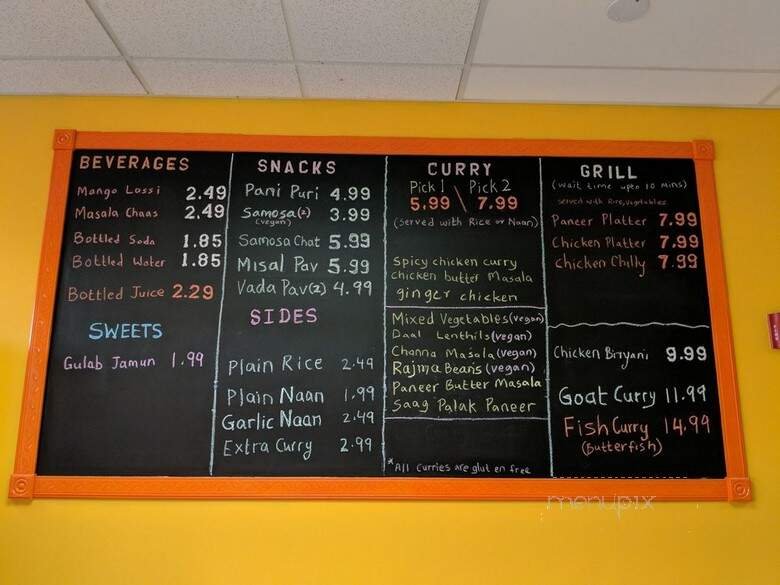 BEVERAGES
Mango Lassi 2.49
Masala Chaas 2.49
Bottled Soda 1.85
Bottled Water 1.85
Bottled Juice 2.29
SWEETS
Gulab Jamun 1.99
SNACKS
Pani Puri 4.99
Samosa(2) 3.99
(vegan)
Samosa Chat 5.99
Misal Pav 5.99
Vada Pav(2) 4.99
SIDES
Plain Rice 2.49
Plain Naan 1.99
Garlic Naan 2.49
Extra Curry 2.99
CURRY
Pick 1 \ Pick 2
5.99 \ 7.99
(served with Rice or Naan)
Spicy chicken curry
chicken butter Masala
ginger chicken
Mixed Vegetables(vegan)
Daal Lenthils(vegan)
Channa Masala(vegan)
Rajma Beans(vegan)
Paneer Butter Masala
Saag Palak Paneer
*All Curries are glut en free
GRILL
(wait time upto 10 mins)
served with Rice, Vegetables
Paneer Platter 7.99
Chicken Platter 7.99
chicken Chilly 7.99
Chicken Biryani 9.99
Goat Curry 11.99
Fish Curry 14.99
(Butterfish)
menupix